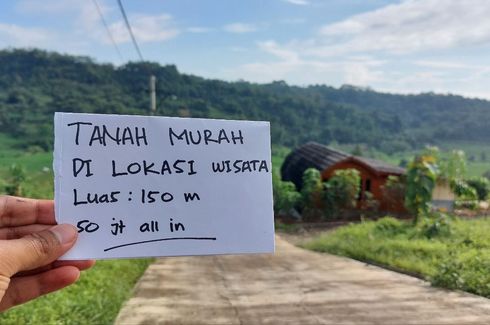 TANAH MURAH
DI LOKASI WISATA
Luas : 150 m
50 jt all in